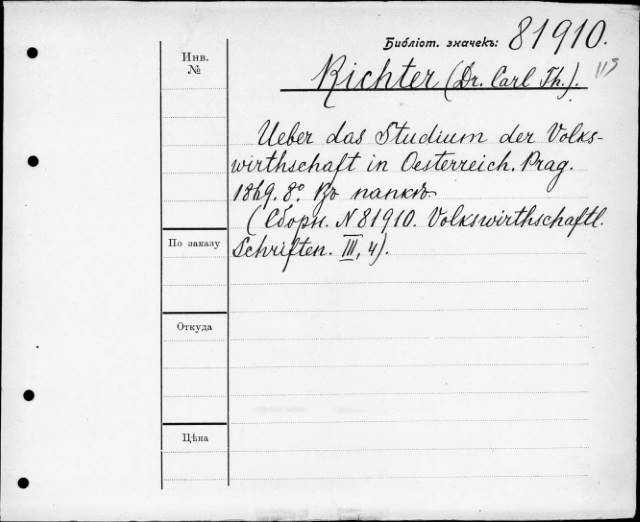 Библіот. значекъ: 81910.
Инв.
№
Richter (Dr. Carl Th.).
Ueber das Studium der Volks-
wirthschaft in Oesterreich. Prag.
1869. 8º. Въ папкѣ.
(Сборн. N 81910. Volkswirthschaftl.
Schriften. III, 4).
По заказу
Откуда
Цѣна